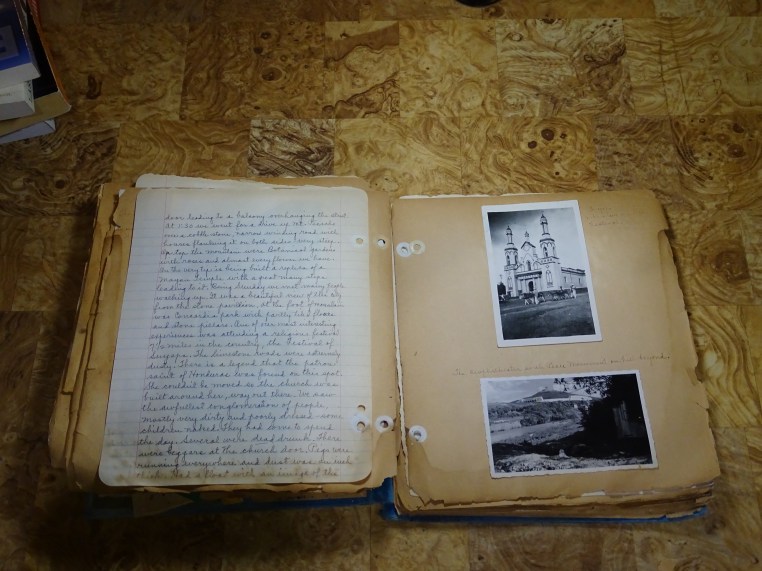 door leading to a balcony overhanging the street.
At 1:30 we went for a drive up Mt. Picacho
over a cobble stone, narrow winding road with
houses flanking it on both sides very steep.
On top the mountain were Botanical gardens
with roses and almost every flower we have.
On the very top is being built a replica of a
Mayan temple with a great many steps
leading to it. Being Sunday we met many people
walking up. It was a beautiful view of the city
from the stone pavilion. At the foot of mountain
was Concordia park with pretty tiled floors
and stone pillars. One of our most interesting
experiences was attending a religious festival
7½ miles in the country, the Festival of
Suyapa. The limestone roads were extremely
dusty. There is a legend that the patron
saint of Honduras was found on this spot.
She couldn't be moved so the church was
built around her, way out there. We saw
the awfullest conglomeration of people
mostly very dirty and poorly dressed some
children naked. They had come to spend
the day. Several were dead drunk. There
were beggars at the church door. Pigs were
running everywhere and dust was an inch
thick. Had a float with an image of the